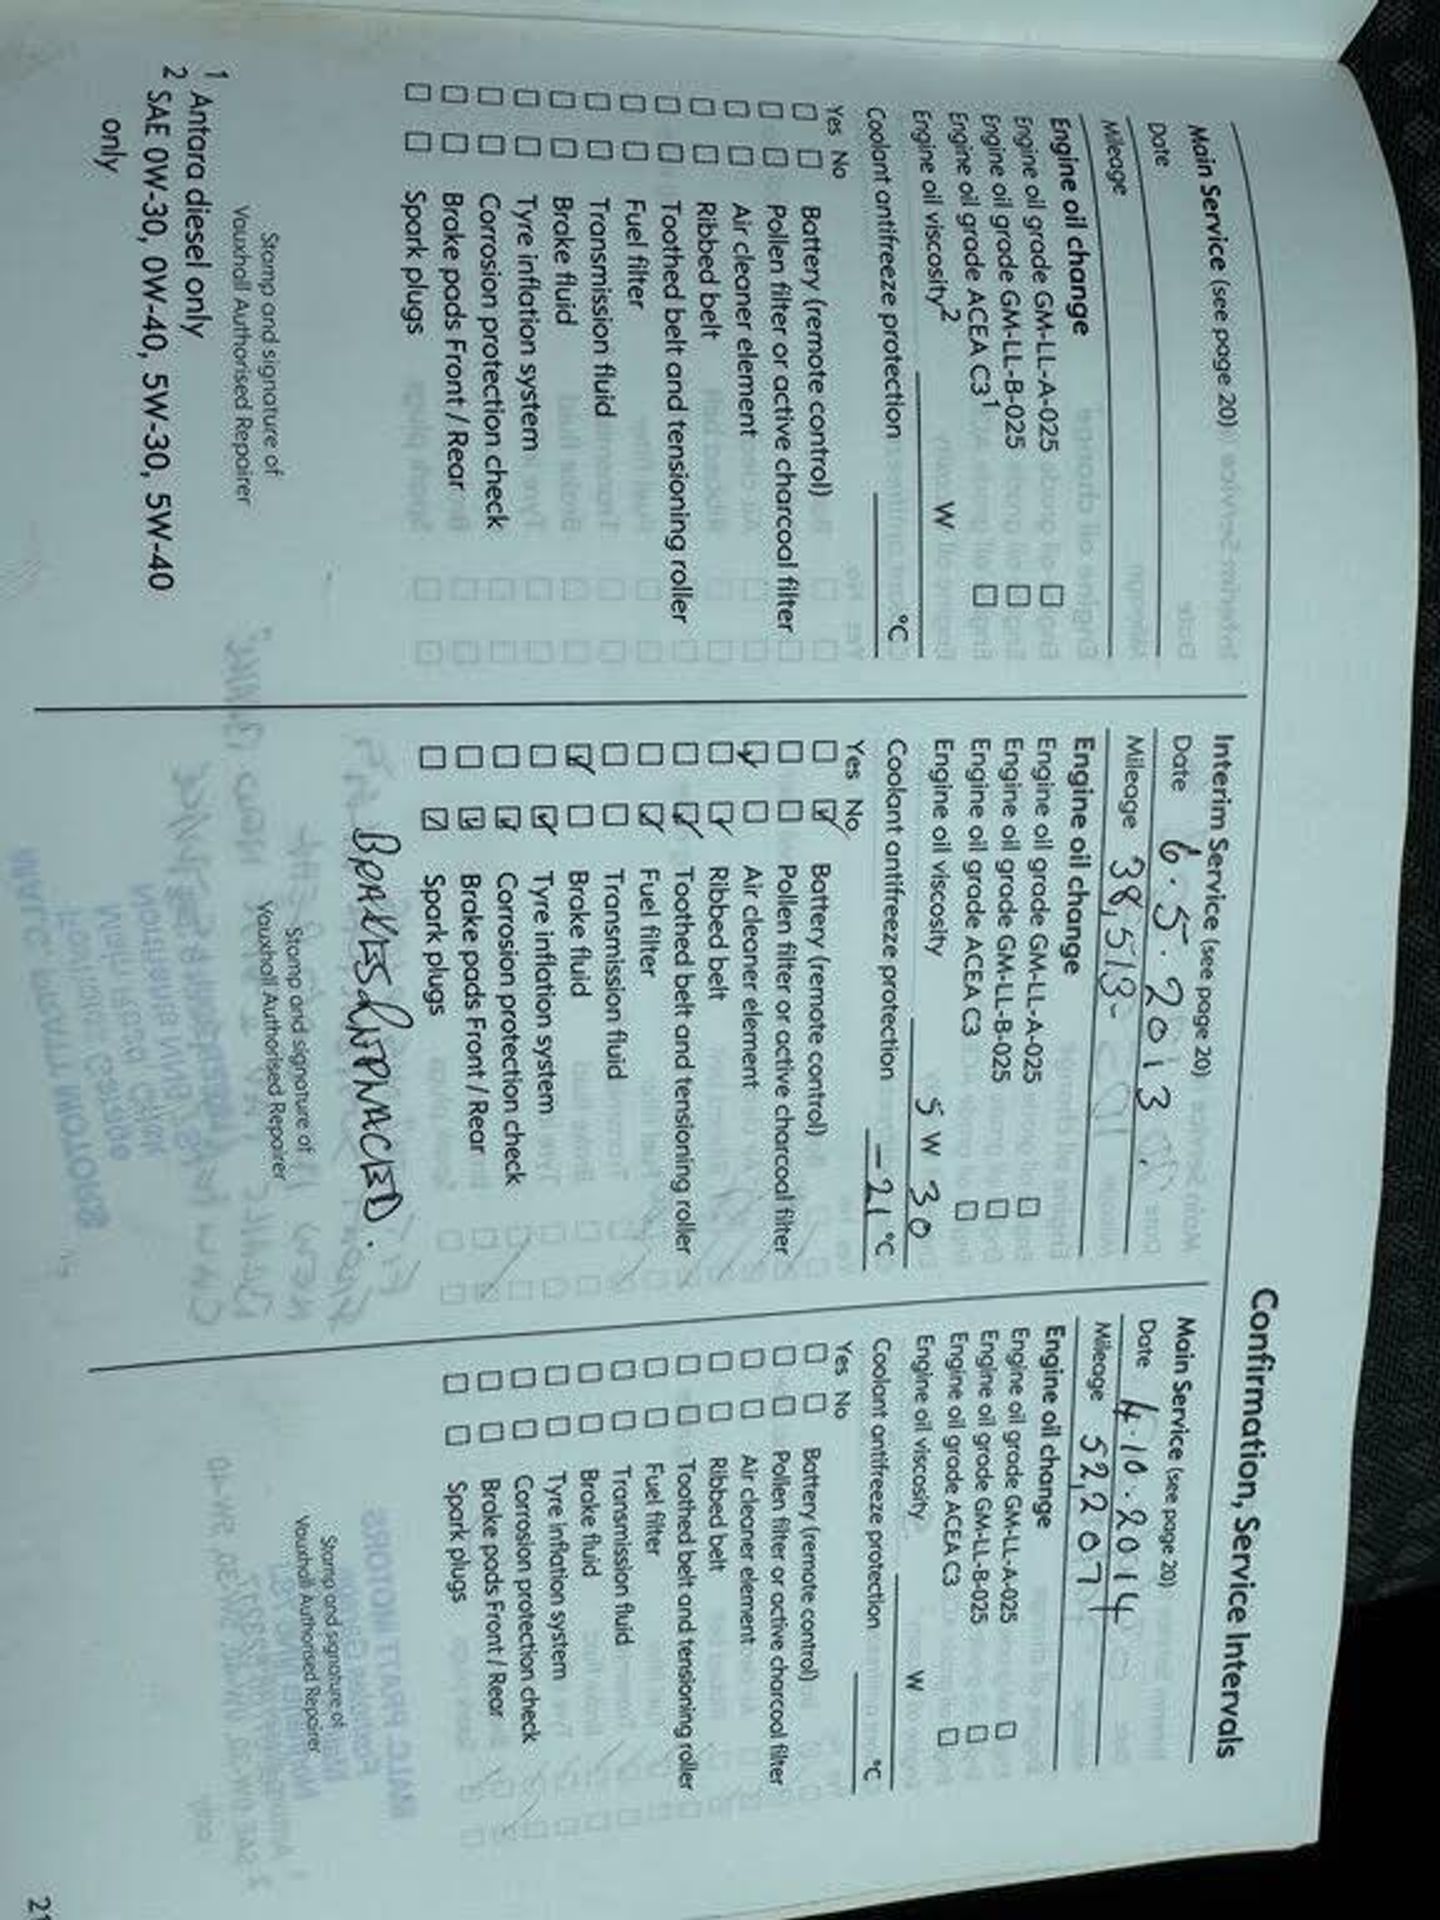 Confirmation, Service Intervals
Main Service (see page 20)
Date
Mileage
Engine oil change
Engine oil grade GM-LL-A-025
Engine oil grade GM-LL-B-025
Engine oil grade ACEA C3¹
Engine oil viscosity² W
Coolant antifreeze protection °C
Yes No
Battery (remote control)
Pollen filter or active charcoal filter
Air cleaner element
Ribbed belt
Toothed belt and tensioning roller
Fuel filter
Transmission fluid
Brake fluid
Tyre inflation system
Corrosion protection check
Brake pads Front / Rear
Spark plugs
Stamp and signature of
Vauxhall Authorised Repairer
1 Antara diesel only
2 SAE 0W-30, 0W-40, 5W-30, 5W-40
only
Interim Service (see page 20)
Date 6.5.2013
Mileage 38,513-
Engine oil change
Engine oil grade GM-LL-A-025
Engine oil grade GM-LL-B-025
Engine oil grade ACEA C3
Engine oil viscosity 5 W 30
Coolant antifreeze protection -21 °C
Yes No
Battery (remote control)
Pollen filter or active charcoal filter
Air cleaner element
Ribbed belt
Toothed belt and tensioning roller
Fuel filter
Transmission fluid
Brake fluid
Tyre inflation system
Corrosion protection check
Brake pads Front / Rear
Spark plugs
BRAKES
Stamp and signature of
Vauxhall Authorised Repairer
Main Service (see page 20)
Date 4.10.2014
Mileage 52,207
Engine oil change
Engine oil grade GM-LL-A-025
Engine oil grade GM-LL-B-025
Engine oil grade ACEA C3
Engine oil viscosity W
Coolant antifreeze protection °C
Yes No
Battery (remote control)
Pollen filter or active charcoal filter
Air cleaner element
Ribbed belt
Toothed belt and tensioning roller
Fuel filter
Transmission fluid
Brake fluid
Tyre inflation system
Corrosion protection check
Brake pads Front / Rear
Spark plugs
Stamp and signature of
Vauxhall Authorised Repairer
21